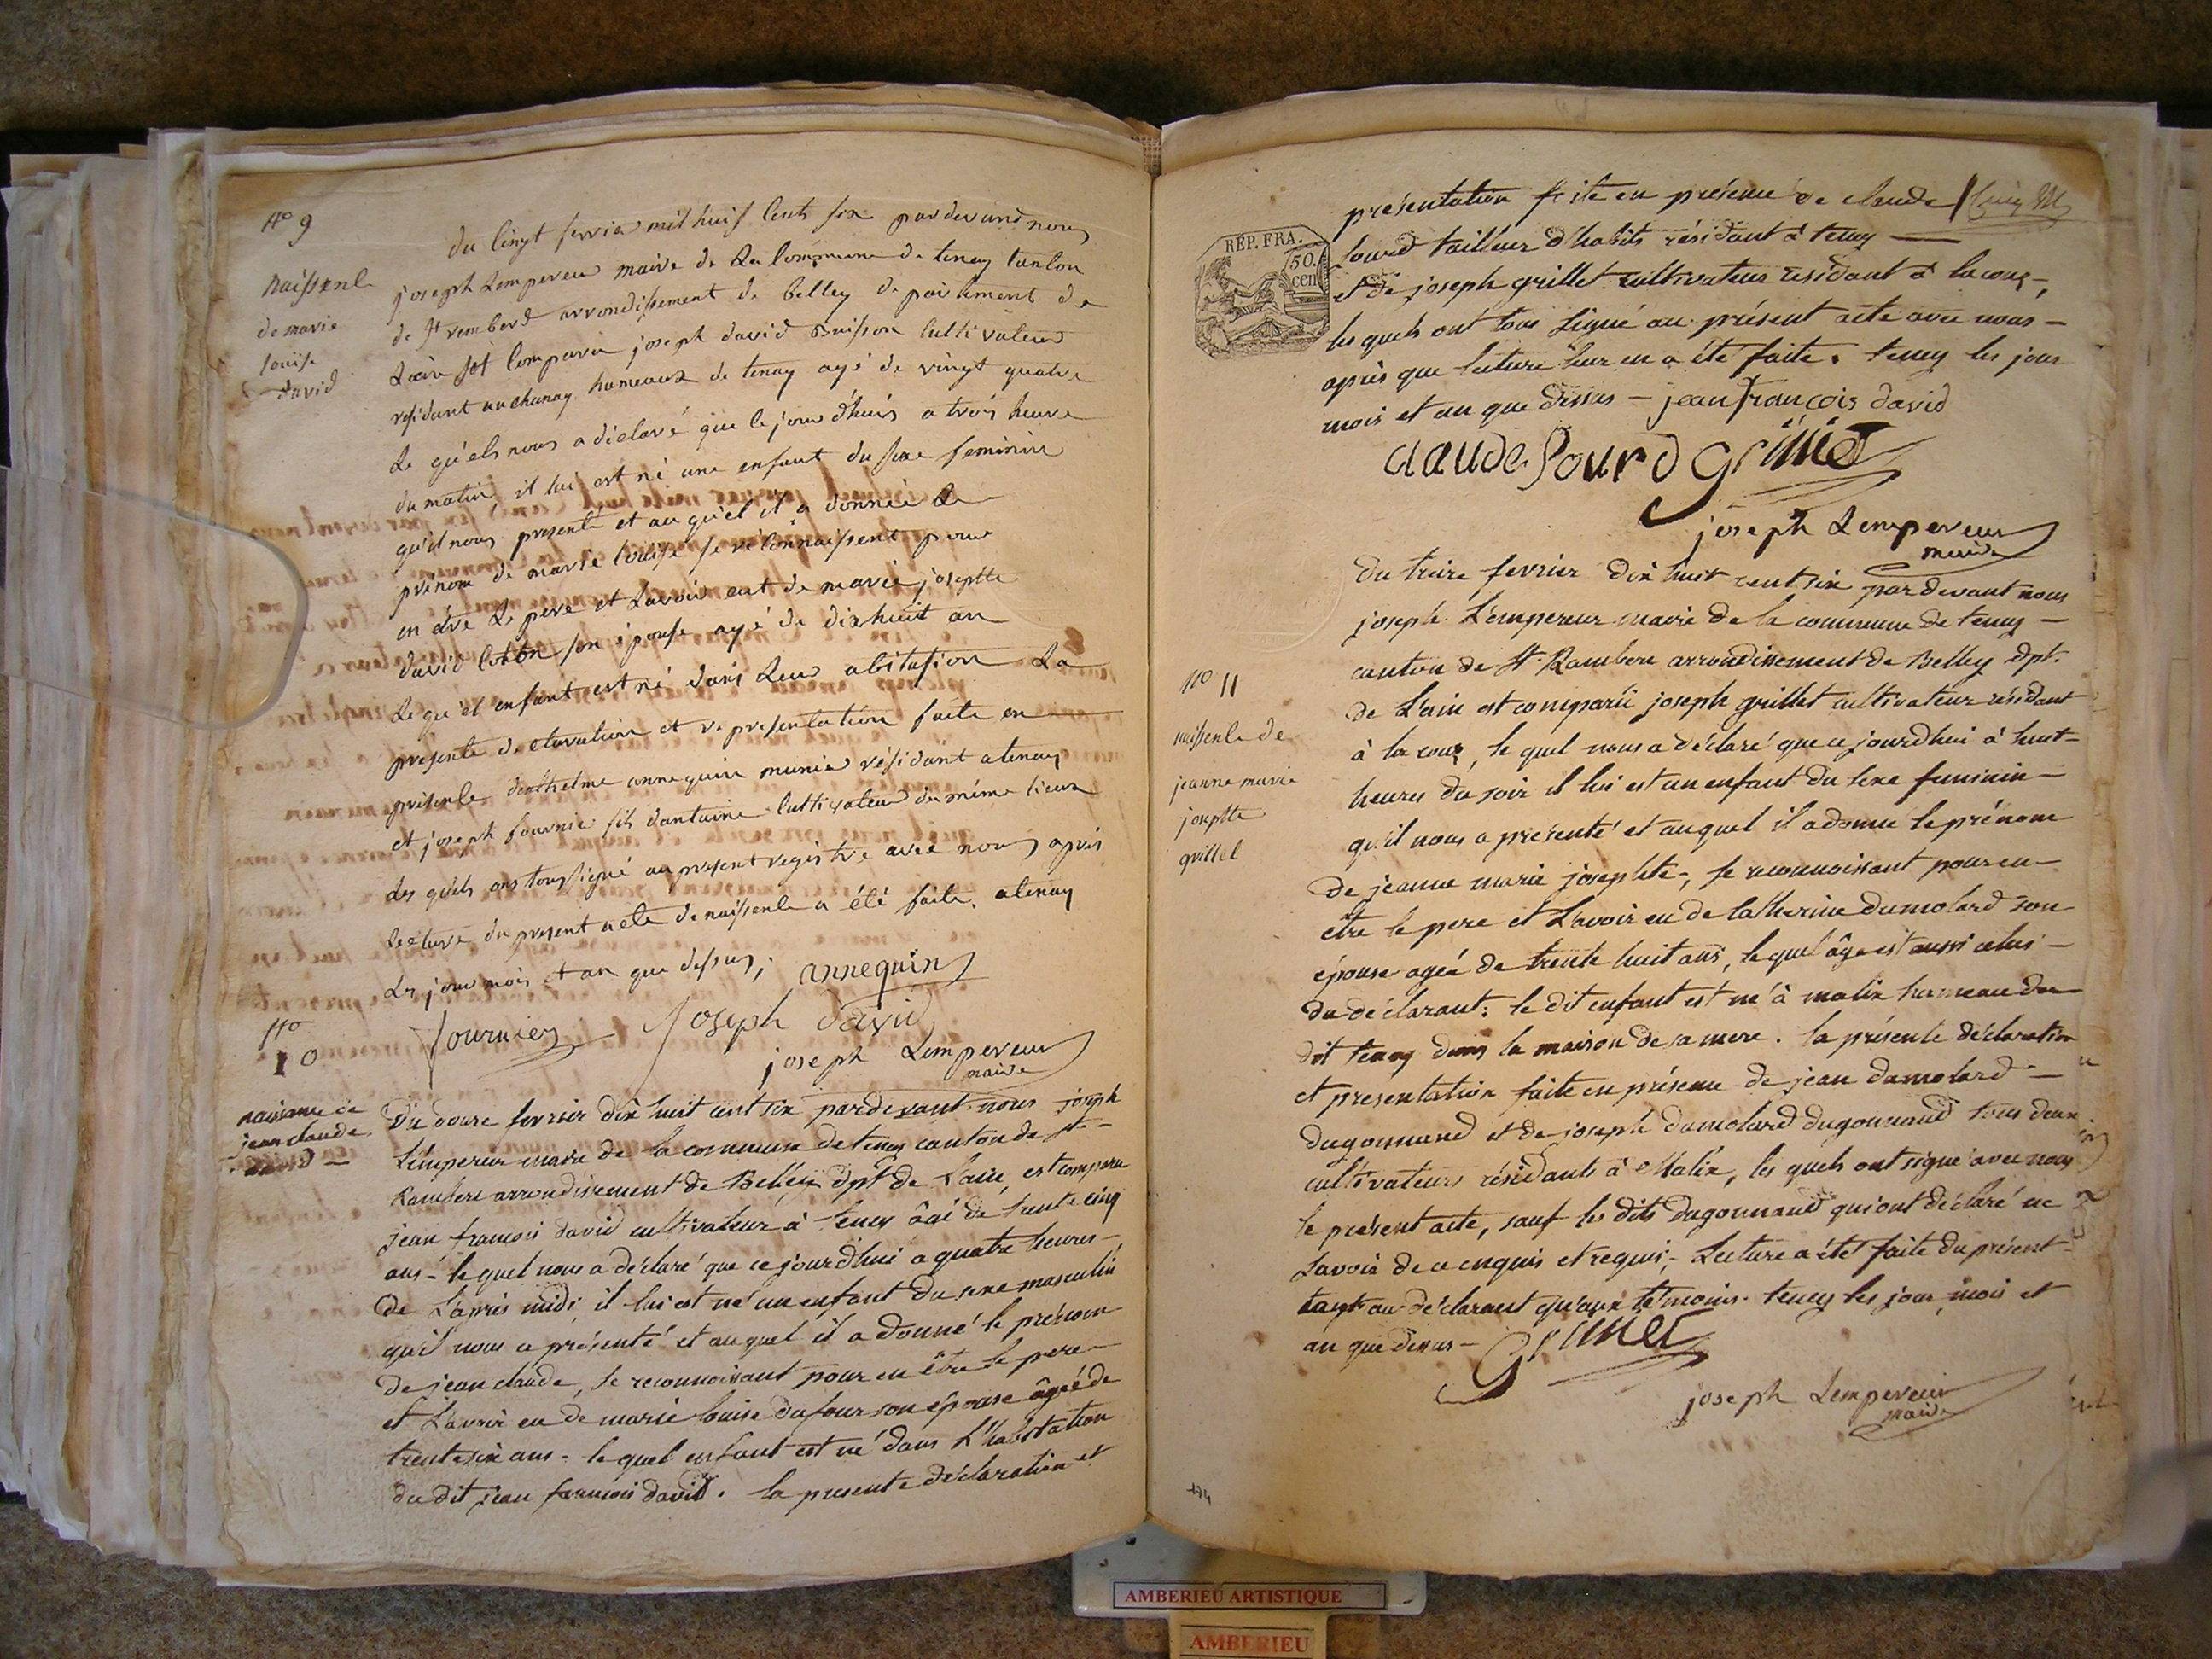 No 9
naissenl
de marie
louise
david
du cinqt fevrie mil huis cents six par devand nous
joseph Lempereur maire de La Commune de tenay canton
de St rembert arrondissement de belley de partement de
Lain est Comparu joseph david buisson Cultivateur
residant au chanay hameaux de tenay agé de vingt quatre
Le quels nous a déclaré que le jour d'huis a trois heure
du matin il lui est né une enfant du sexe feminin
qu'il nous presente et au quel il a donnée Le
prénom de marie louise se réconnaissent pour
en etre Le pere et Lavoir eut de marie josephte
david Cotton son épouse agé de dixhuit an
Le qu'el enfant est né dans Leur abitasion La
presente declaration et representation faite en
présenle danthelme annequin munie résidant atenay
et joseph fournie fils dantoine Cultivateur du même lieux
Les quels ons tous signé au present registre avec nous après
Lecture du present acte de naissenle a été faite. atenay
Les jour mois et an que dessus, annequin
fournier Joseph David
joseph Lempereur
maire
No
10
naissance de
jean claude
david
Du douze fevrier dix huit cent six pardevant nous joseph
Lempereur maire de la commune de tenay canton de St
Rambert arrondissement de Belley dpt de L'ain, est comparu
jean francois david cultivateur à tenay âgé de trente cinq
ans - le quel nous a déclaré que ce jourd'hui a quatre heures
de L'après midi il lui est né un enfant du sexe masculin
qu'il nous a présenté et au quel il a donné le prénom
de jean claude, se reconnoissant pour en être le pere
et L'avoir eu de marie louise dufour son épouse âgée de
trente six ans - le quel enfant est né dans L'habitation
du dit jean francois david. la presente déclaration et
présentation faite en présence de claude
RÉP. FRA.
50.
cen
lourd tailleur d'habits résidant à tenay
et de joseph grillet cultivateur résidant à lacoux,
les quels ont tous signé au présent acte avec nous
après que lecture leur en a été faite. tenay les jour
mois et an que dessus - jean françois david
claude Lourd Grillet
joseph Lempereur
maire
No 11
naissenle de
jeanne marie
josephte
grillel
du treize fevrier dix huit cent six pardevant nous
joseph L'empereur maire de la commune de tenay
canton de St Rambert arrondissement de Belley dpt.
de L'ain est comparu joseph grillet cultivateur résidant
à la coux, le quel nous a déclaré que ce jourdhui à huit
heures du soir il lui est un enfant du sexe feminin
qu'il nous a présenté et au quel il a donné le prénom
de jeanne marie josephte, se reconnoissant pour en
etre le pere et L'avoir eu de Catherine dumolard son
épouse agée de trente huit ans, le quel âge est aussi celui
du déclarant: le dit enfant est né à malix hameau du
dit tenay dans la maison de sa mere. la présente déclaration
et presentation faite en présence de jean dumolard
dugonnand et de joseph dumolard dugonnand tous deux
cultivateurs résidants à Malix, les quels ont signé avec nous
le présent acte, sauf les dits dugonnand qui ont déclaré ne
savoir de ce enquis et requis, Lecture a été faite du présent
tant au déclarant qu'aux témoins. tenay les jour, mois et
an que dessus - Grillet
joseph Lempereur
maire
AMBERIEU ARTISTIQUE
AMBERIEU